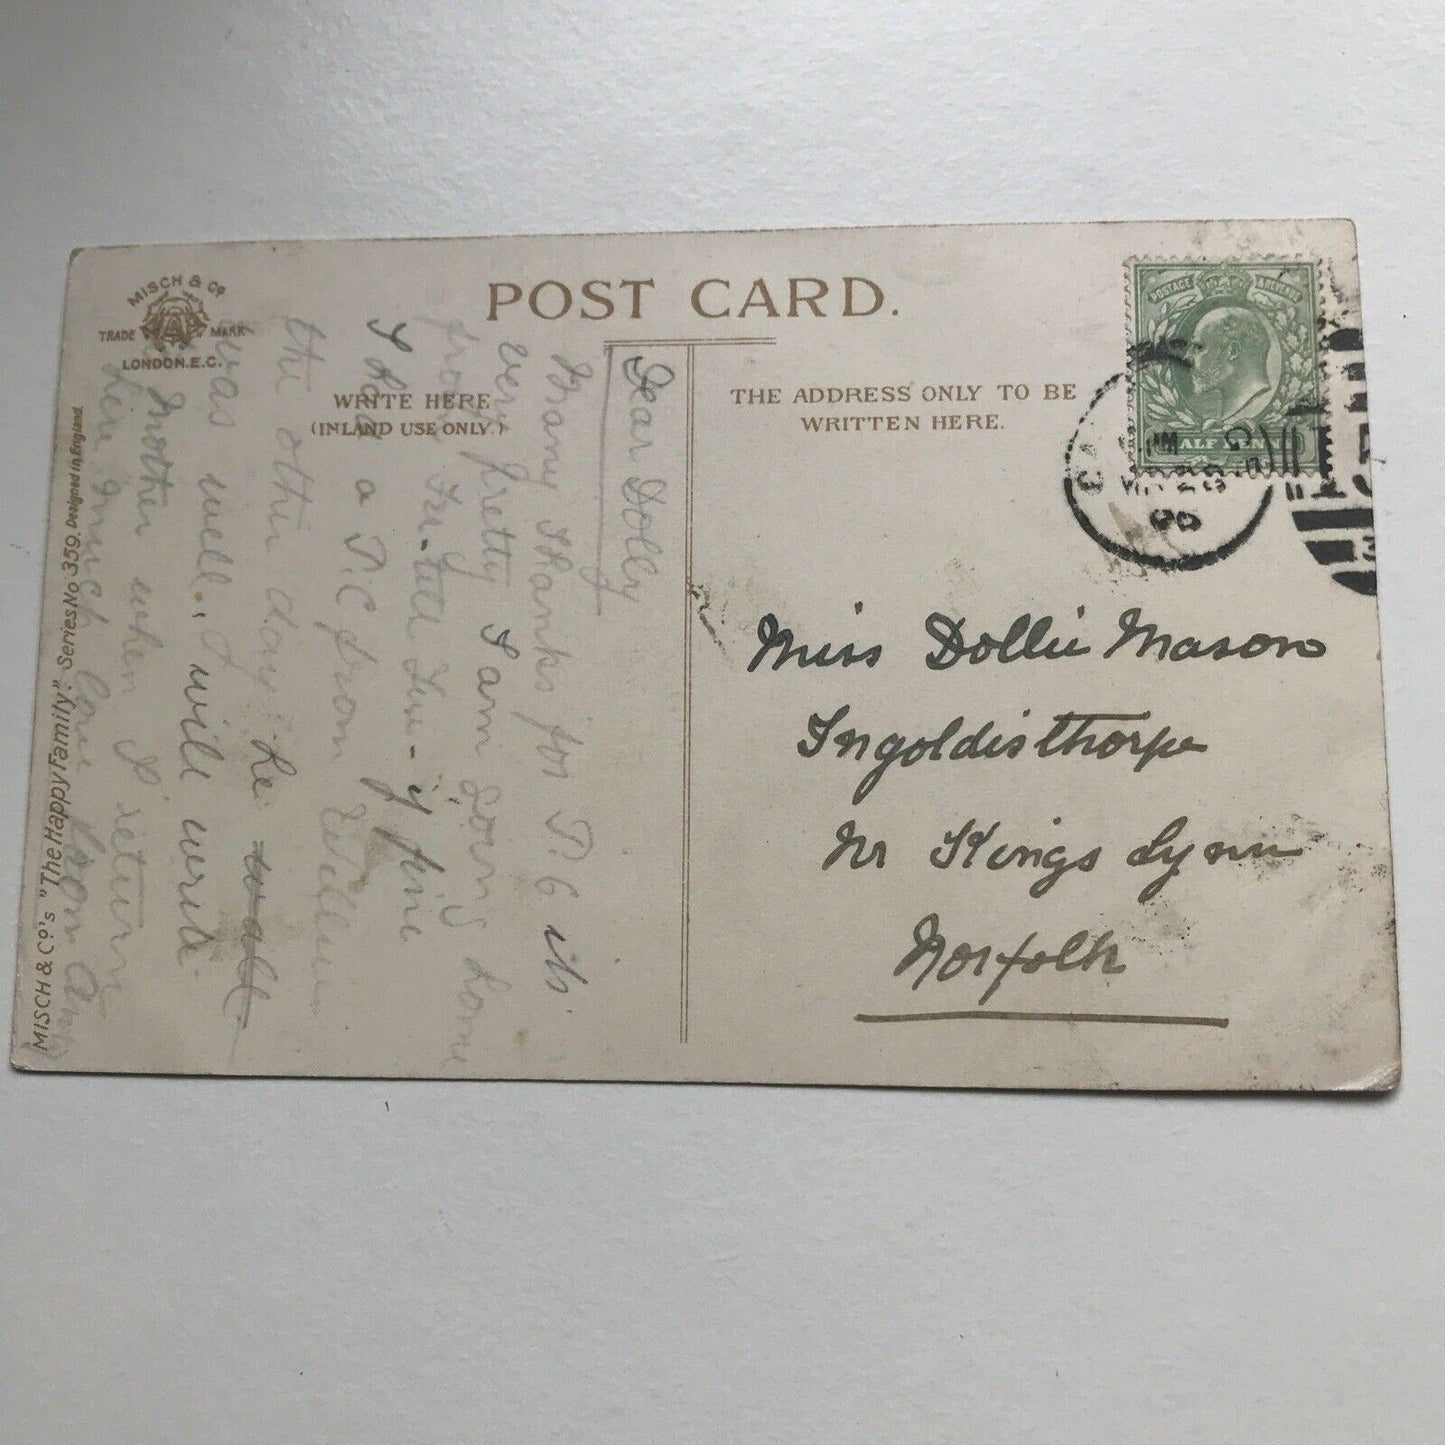 MISCH & Co.
TRADE MARK
LONDON. E.C.
POST CARD.
WRITE HERE
(INLAND USE ONLY.)
THE ADDRESS ONLY TO BE
WRITTEN HERE.
POSTAGE & REVENUE
HALF PENNY
Miss Dollie Mason
Ingoldisthorpe
Nr Kings Lynn
Norfolk
Dear Dolly
Many Thanks for P.C its
very pretty I am going home
from
I had a P.C from Willie
the other day he
was well. I will write
Mother when I return
here much love from
MISCH & Co's "The Happy Family". Series No. 359. Designed in England.